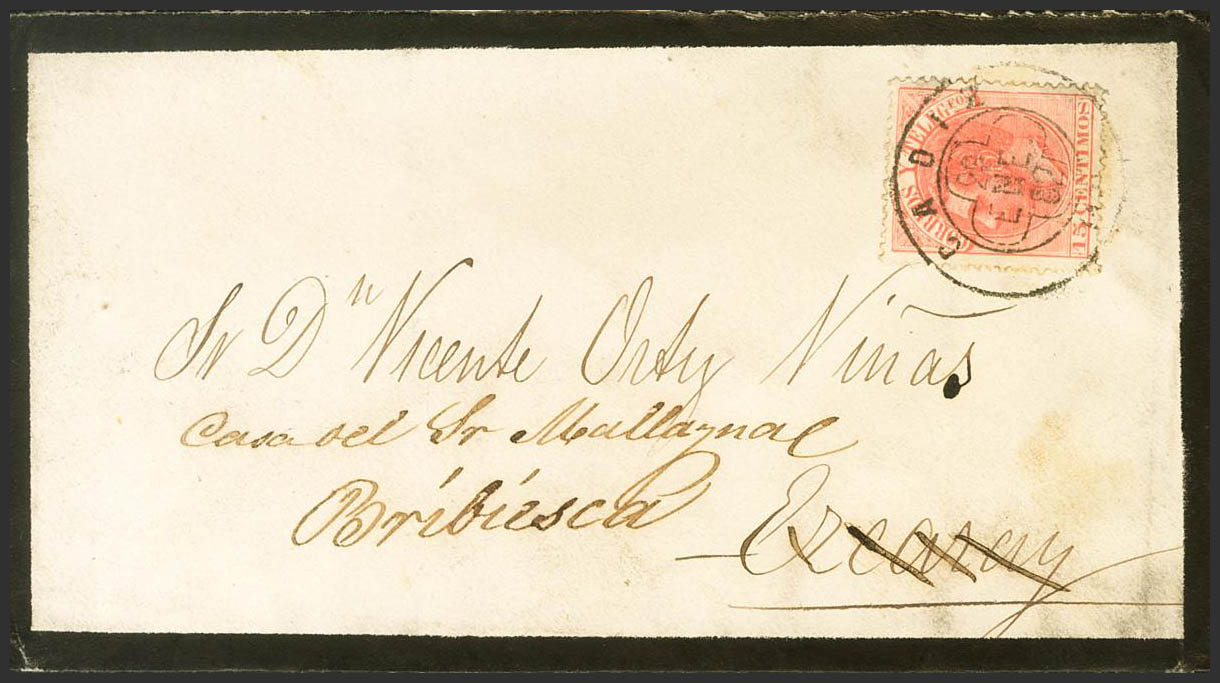 CORREOS Y TELEGFOS
15 CENTIMOS
CADIZ
ENE
Sr Dn Vicente Ortiz Viñas
Casa del Sr Mallaynal
Bribiesca
Ezcaray